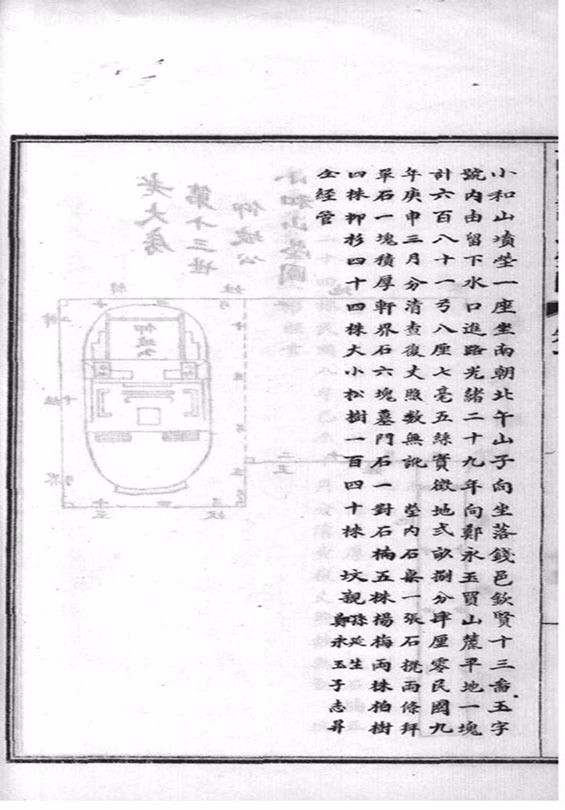 小和山墳塋一座坐南朝北午山子向坐落錢邑欽賢十三啚五字
號內由留下水口進路光緒二十九年向鄭永玉買山麓平地一塊
計六百八十一弓八厘七毫五絲實徵地弍畝捌分肆厘零民國九
年庚申三月分清查復丈照數無訛 塋內石桌一張石櫈兩條拜
單石一塊積厚軒界石六塊墓門石一對石楠五株楊梅兩株柏樹
四株柳杉四十四株大小松樹一百四十株 坟親孫延生
鄭永玉子志昇
仝經管
小和山塋圖
仰城公
第十三世
老大房
仰城公